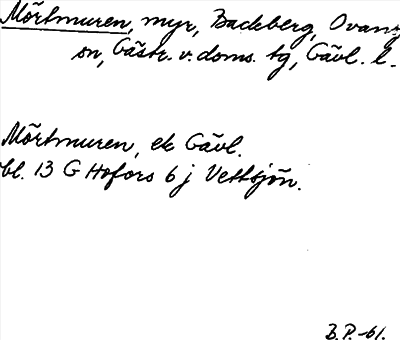 Mörtmuren, myr, Backberg, Ovansj
ön, Gästr. v. doms. tg, Gävl. l.
Mörtmuren, ek Gävl.
bl. 13 G Hofors 6 j Vettsjön.
B.P.-61.